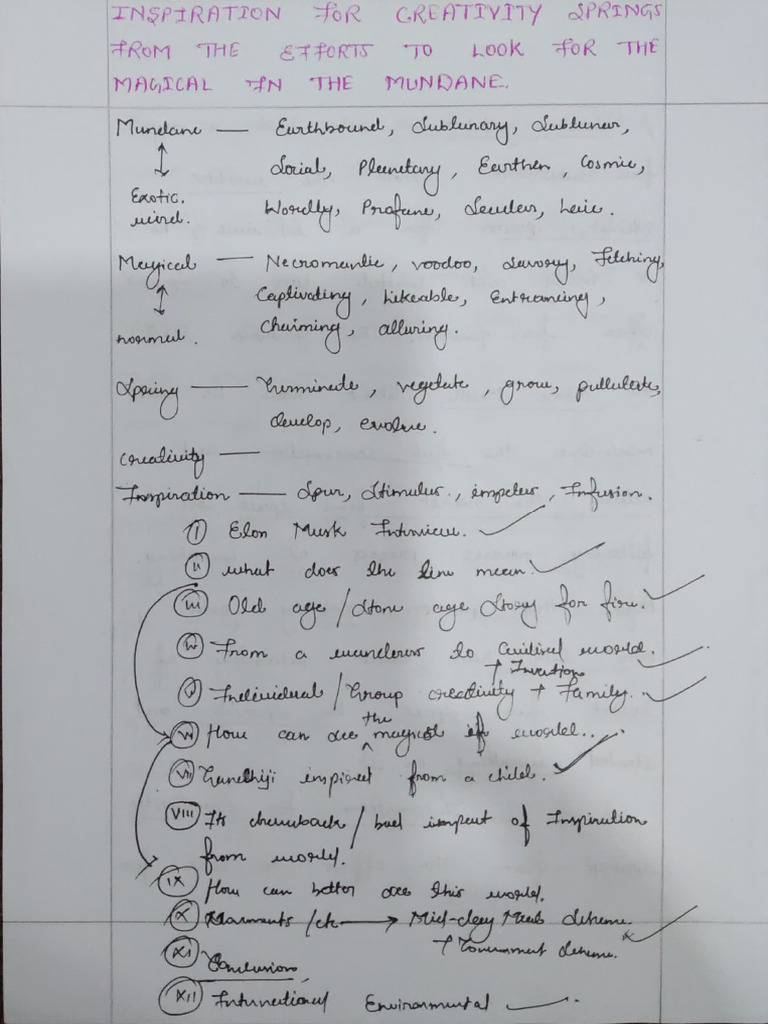 INSPIRATION FOR CREATIVITY SPRINGS
FROM THE EFFORTS TO LOOK FOR THE
MAGICAL IN THE MUNDANE.
Mundane — Earthbound, Sublunary, Sublunar,
Social, Planetary, Earthen, Cosmic,
Exotic. Wordly, Profane, Secular, Laic.
Magical — Necromantic, voodoo, Savory, Fetching,
Captivating, Likeable, Entrancing,
normal. Charming, alluring.
Spring — Germinate, vegetate, grow, pullulate,
develop, evolve.
Creativity —
Inspiration — Spur, Stimulus, impetus, Infusion.
I Elon Musk Interview.
II what does the line mean.
III Old age / Stone age Story for fire.
IV From a wanderers to Civilised world.
+ Invention
V Individual / Group creativity + Family.
VI How can see the magical of world..
VII Gandhiji inspired from a child.
VIII Its drawback / bad impact of Inspiration
from world.
IX How can better see this world.
X /etc → Mid-day Meal Scheme.
+ Government Scheme.
XI Conclusion
XII International Environmental